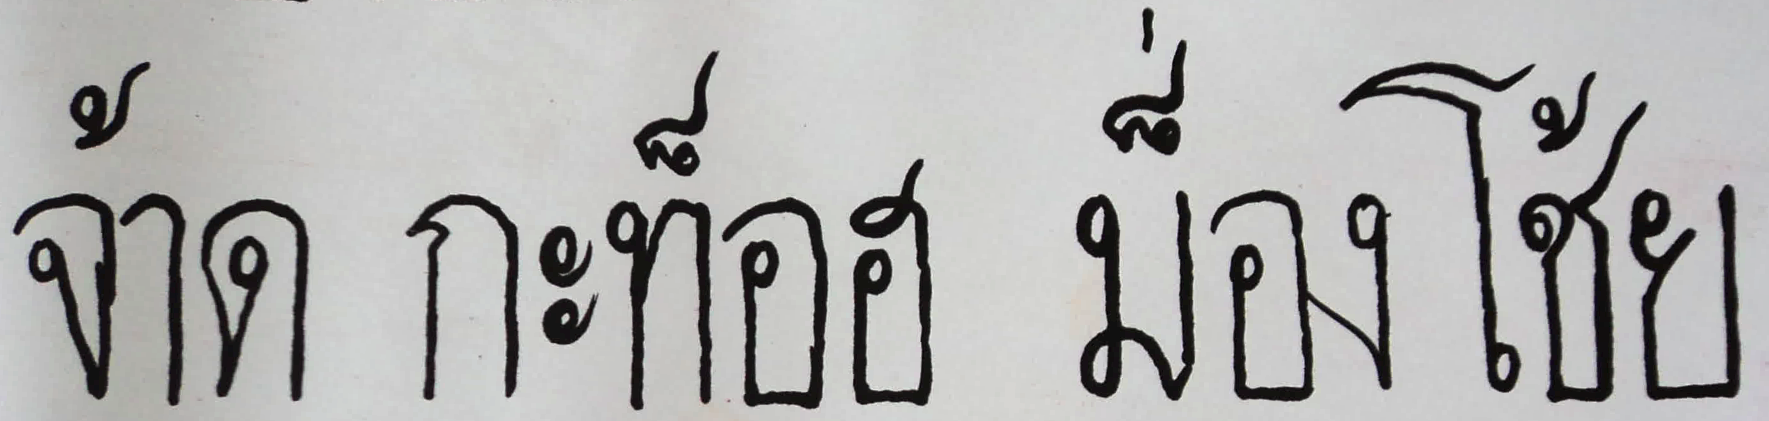 จ้าด กะท็อฮ ม็่องโช้ย